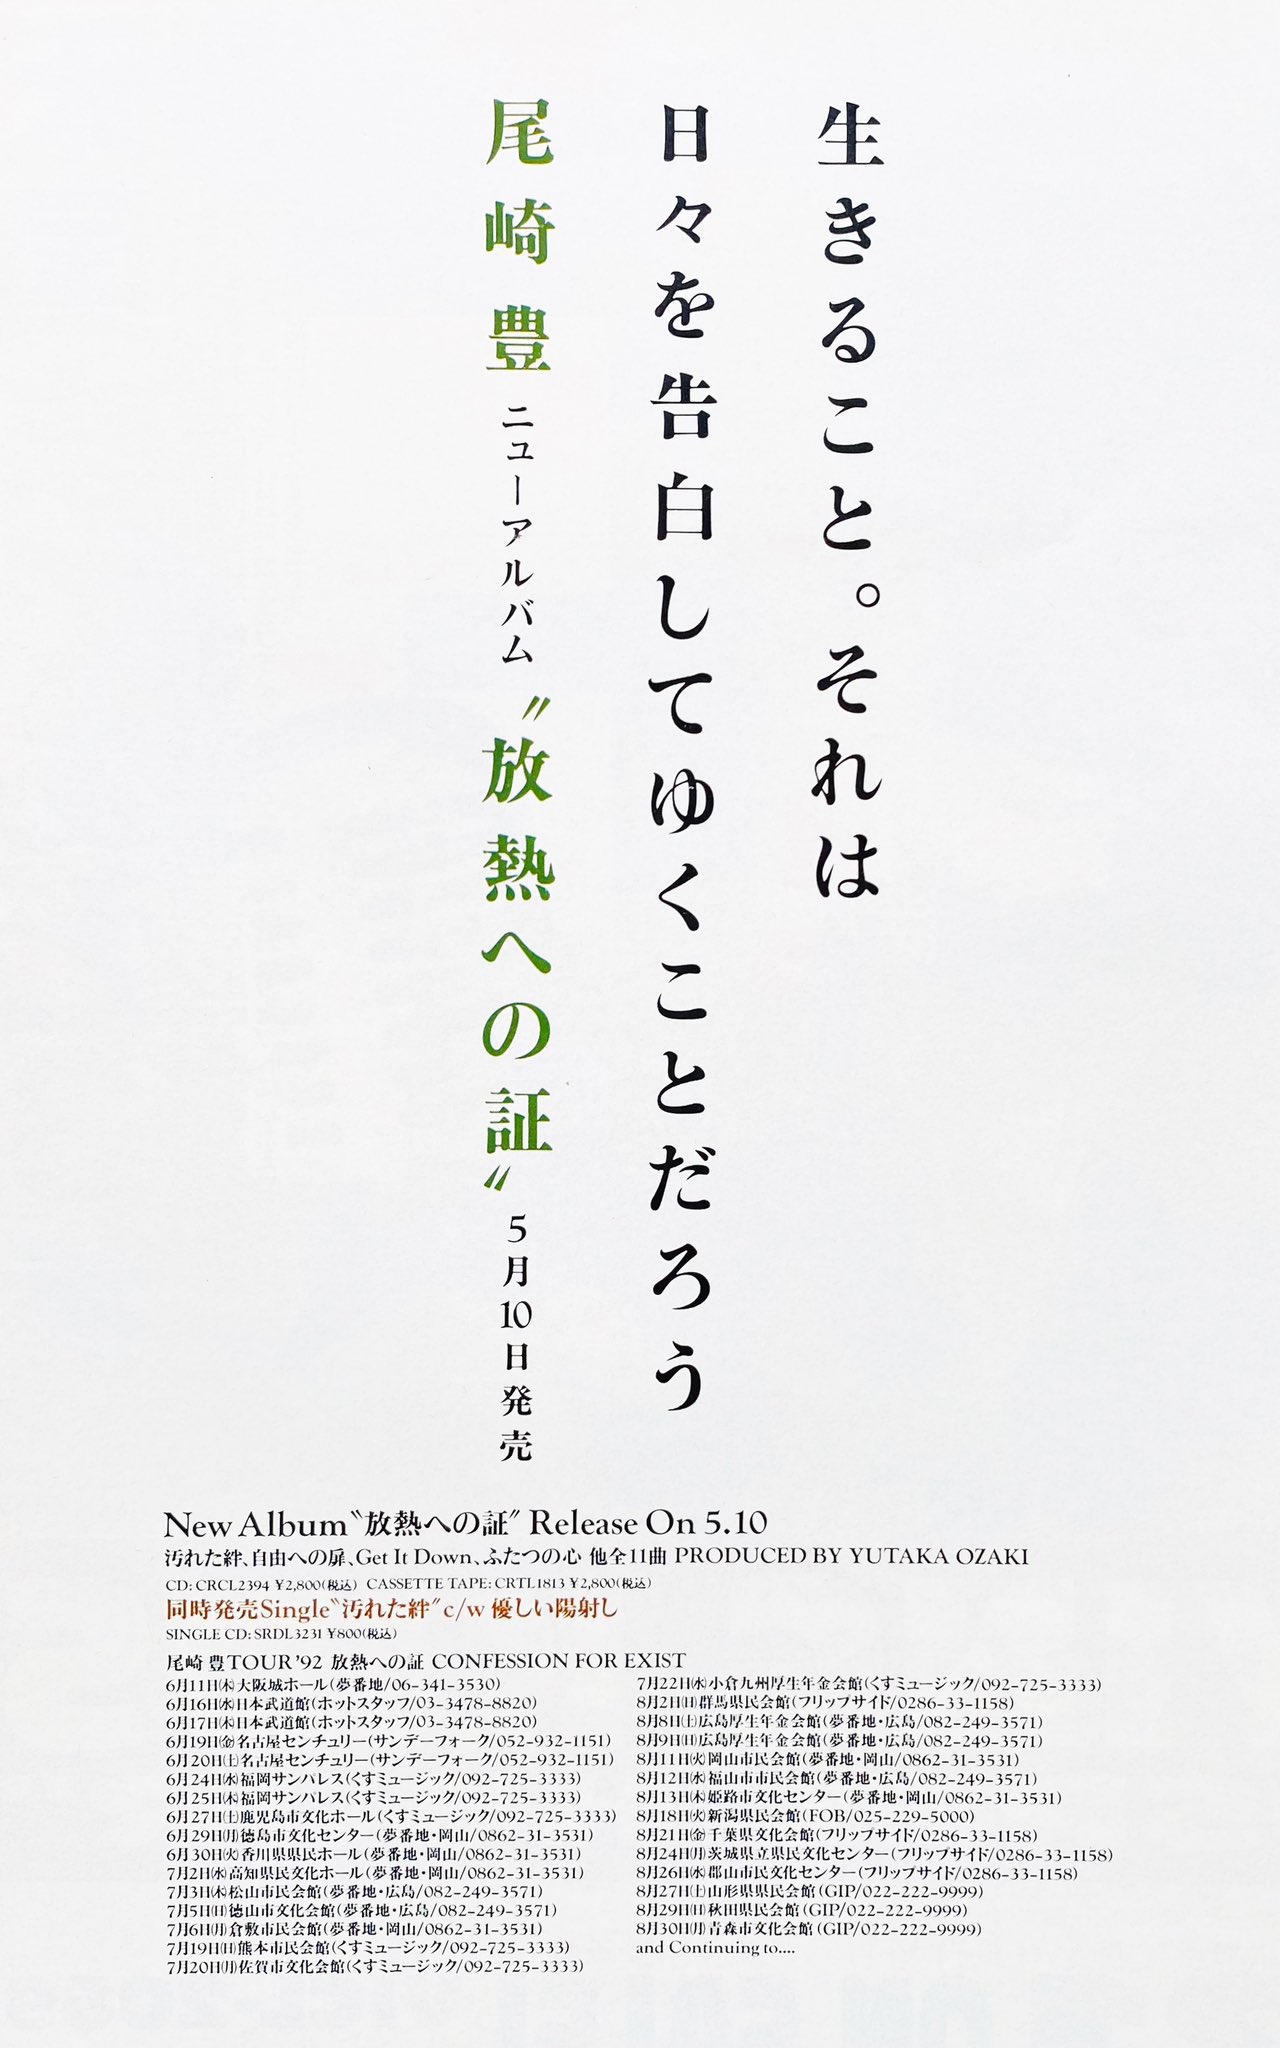 生きること。それは
日々を告白してゆくことだろう
尾崎豊 ニューアルバム〝放熱への証〟5月10日発売
New Album〝放熱への証〟Release On 5.10
汚れた絆、自由への扉、Get It Down、ふたつの心 他全11曲 PRODUCED BY YUTAKA OZAKI
CD: CRCL2394 ¥2,800(税込) CASSETTE TAPE: CRTL1813 ¥2,800(税込)
同時発売Single〝汚れた絆〟c/w 優しい陽射し
SINGLE CD: SRDL3231 ¥800(税込)
尾崎 豊TOUR '92 放熱への証 CONFESSION FOR EXIST
6月11日㈭大阪城ホール(夢番地/06-341-3530)
6月16日㈬日本武道館(ホットスタッフ/03-3478-8820)
6月17日㈭日本武道館(ホットスタッフ/03-3478-8820)
6月19日㈮名古屋センチュリー(サンデーフォーク/052-932-1151)
6月20日㈯名古屋センチュリー(サンデーフォーク/052-932-1151)
6月24日㈬福岡サンパレス(くすミュージック/092-725-3333)
6月25日㈭福岡サンパレス(くすミュージック/092-725-3333)
6月27日㈯鹿児島市文化ホール(くすミュージック/092-725-3333)
6月29日㈪徳島市文化センター(夢番地・岡山/0862-31-3531)
6月30日㈫香川県県民ホール(夢番地・岡山/0862-31-3531)
7月2日㈬高知県民文化ホール(夢番地・岡山/0862-31-3531)
7月3日㈭松山市民会館(夢番地・広島/082-249-3571)
7月5日㈰徳山市文化会館(夢番地・広島/082-249-3571)
7月6日㈪倉敷市民会館(夢番地・岡山/0862-31-3531)
7月19日㈰熊本市民会館(くすミュージック/092-725-3333)
7月20日㈪佐賀市文化会館(くすミュージック/092-725-3333)
7月22日㈬小倉九州厚生年金会館(くすミュージック/092-725-3333)
8月2日㈰群馬県民会館(フリップサイド/0286-33-1158)
8月8日㈯広島厚生年金会館(夢番地・広島/082-249-3571)
8月9日㈰広島厚生年金会館(夢番地・広島/082-249-3571)
8月11日㈫岡山市民会館(夢番地・岡山/0862-31-3531)
8月12日㈬福山市市民会館(夢番地・広島/082-249-3571)
8月13日㈭姫路市文化センター(夢番地・岡山/0862-31-3531)
8月18日㈫新潟県民会館(FOB/025-229-5000)
8月21日㈮千葉県文化会館(フリップサイド/0286-33-1158)
8月24日㈪茨城県立県民文化センター(フリップサイド/0286-33-1158)
8月26日㈬郡山市民文化センター(フリップサイド/0286-33-1158)
8月27日㈯山形県県民会館(GIP/022-222-9999)
8月29日㈰秋田県民会館(GIP/022-222-9999)
8月30日㈪青森市文化会館(GIP/022-222-9999)
and Continuing to....